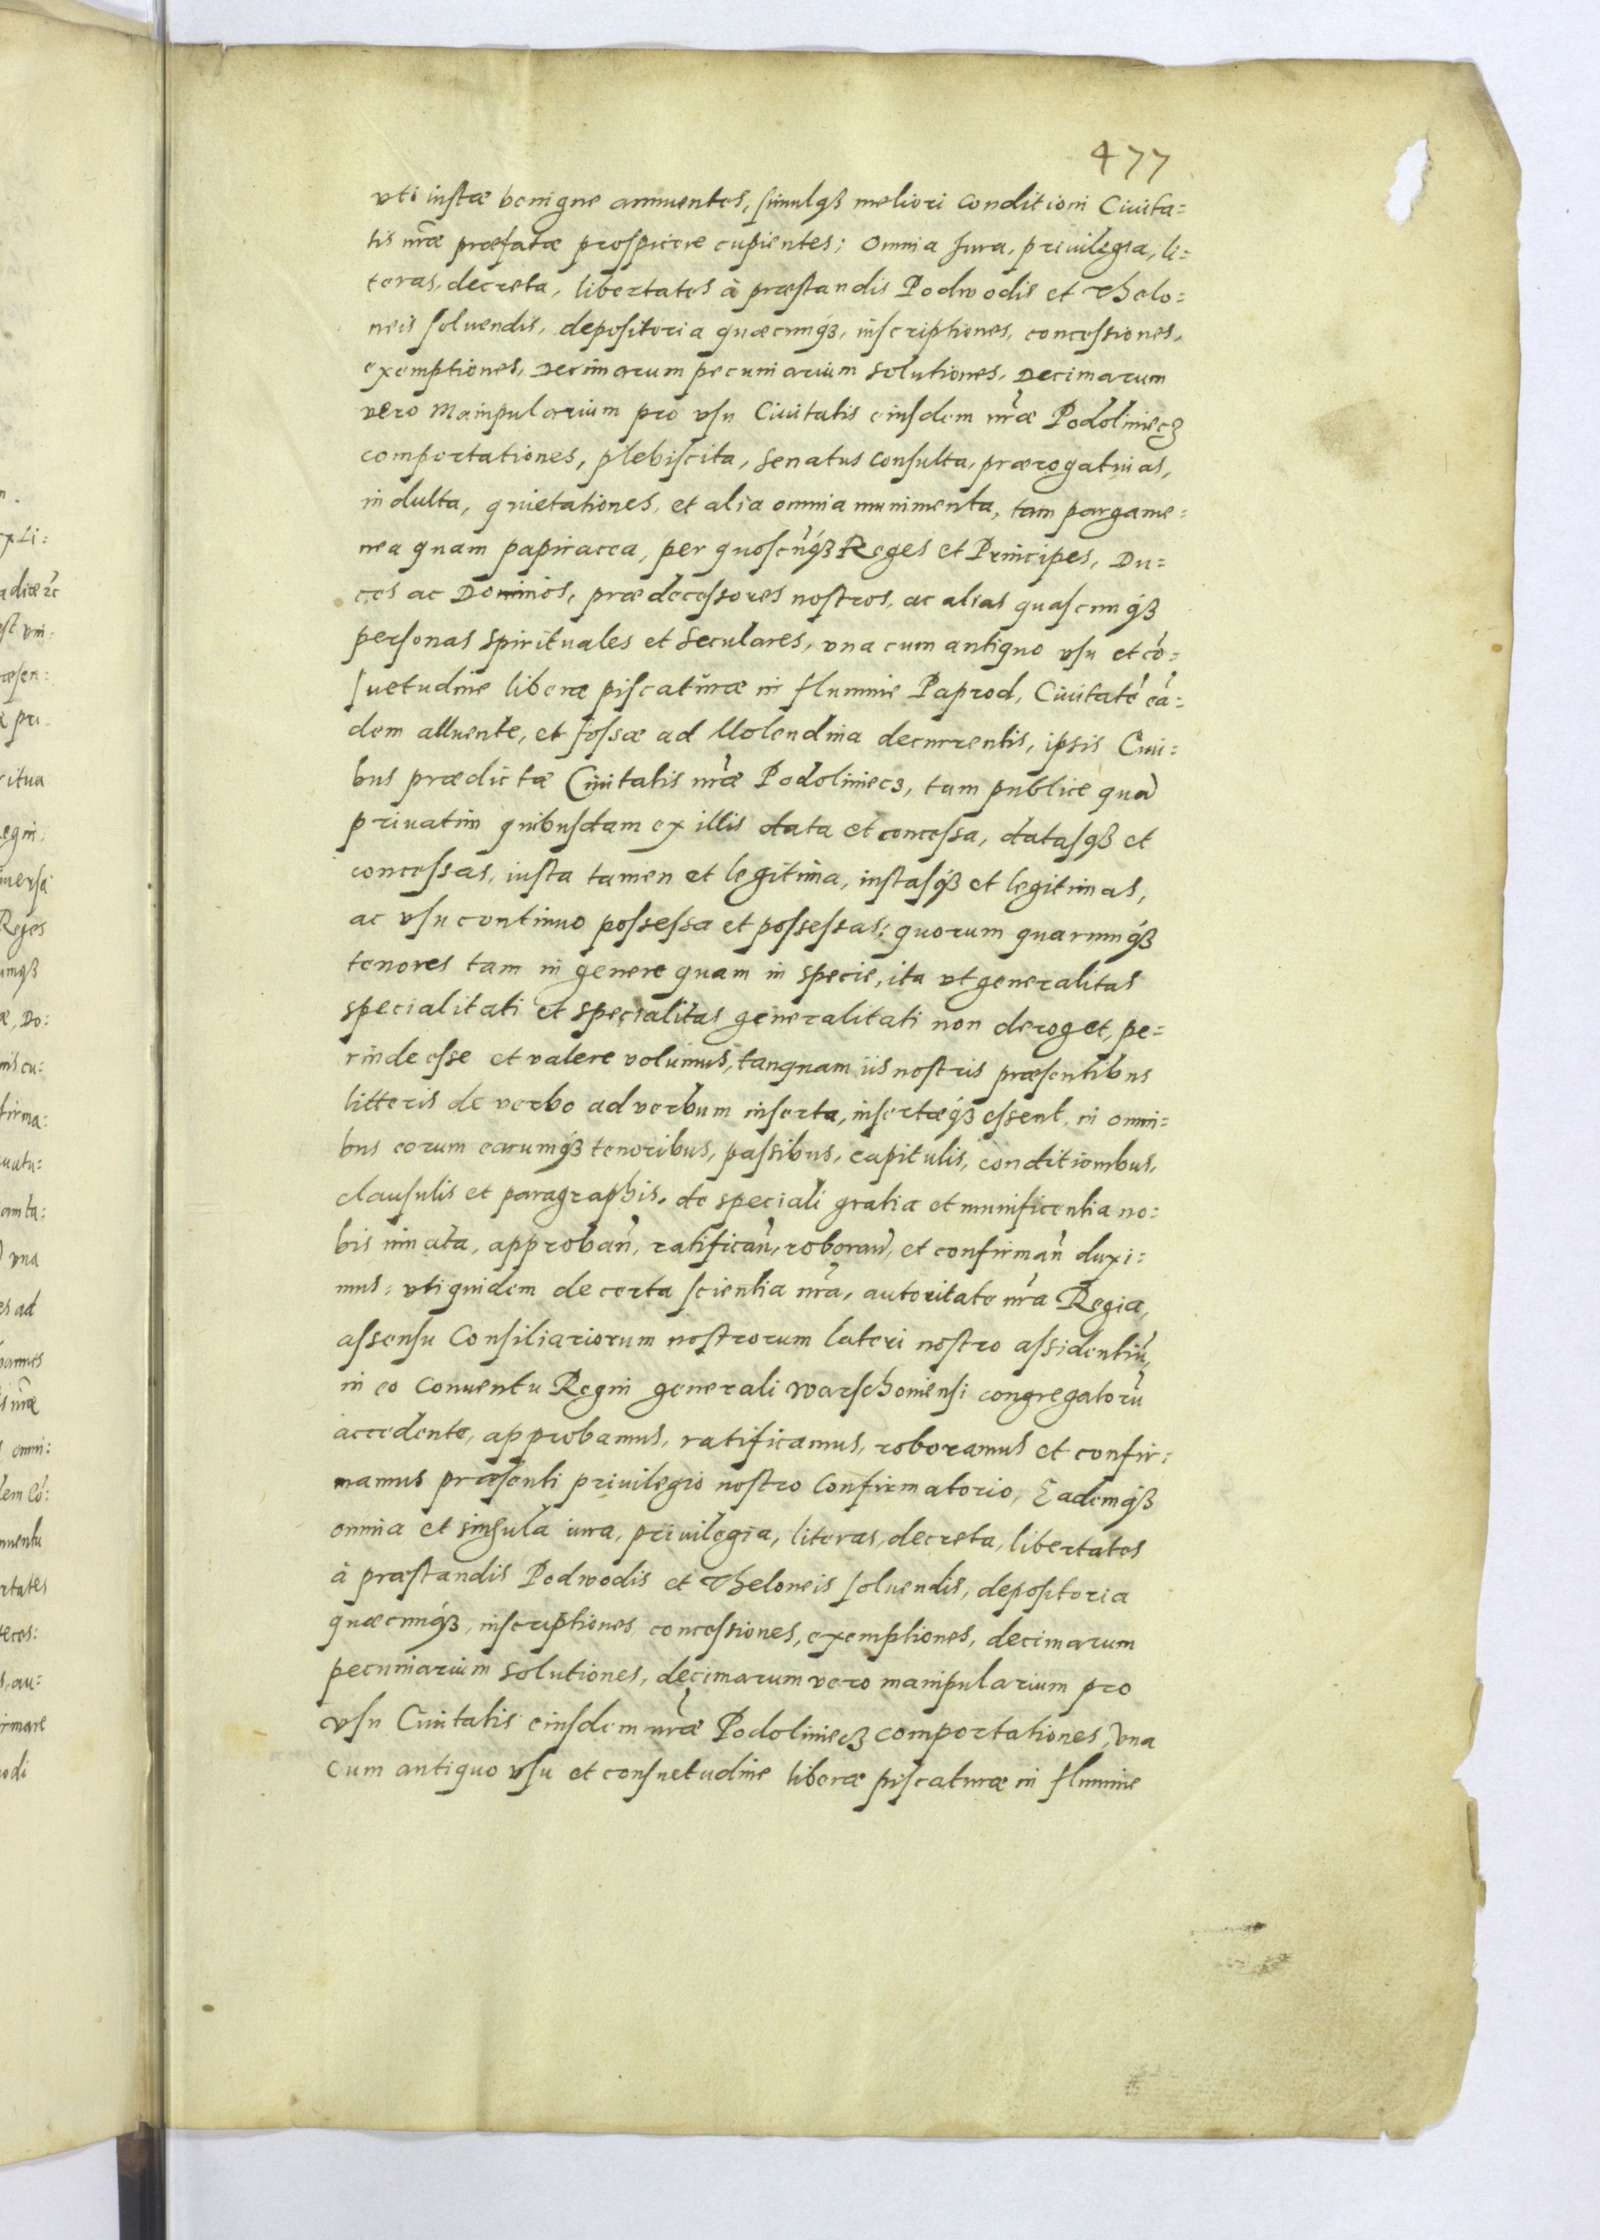 477
vti iustæ benigne annuentes, simulqз meliori conditioni Ciuita=
tis nr̃æ præfatæ prospicere cupientes; omnia Jura, priuilegia, li=
teras, decreta, libertates à præstandis Podwodis et Thelo=
neis soluendis, depositoria quæcunqз, inscriptiones, concessiones,
exemptiones, Decimarum pecuniarium solutiones, Decimarum
vero Manipularium pro vsu Ciuitatis eiusdem nr̃æ Podoliniecz
comportationes, plebiscita, Senatus consulta, prærogatiuas,
indulta, quietationes, et alia omnia munimenta, tam pargame=
nea quam papiracea, per quoscũqз Reges et Principes, Du=
ces ac Dominos, prædecessores nostros, ac alias quascunqз
personas spirituales et seculares, vna cum antiquo vsu et cõ=
suetudine liberæ piscaturæ in flumine Paprod, Ciuitatẽ eã=
dem alluente, et fossæ ad Molendina decurrentis, ipsis Ciui=
bus prædictæ Ciuitatis nr̃æ Podoliniecz, tam publice quã
priuatim quibusdam ex illis data et concessa, datasqз et
concessas, iusta tamen et legitima, iustasqз et legitimas,
ac vsu continuo possessa et possessas: quorum quarumqз
tenores tam in genere quam in specie, ita vt generalitas
specialitati et specialitas generalitati non deroget, pe=
rinde esse et valere volumus, tanquam iis nostris præsentibus
litteris de verbo ad verbum inserta, insertæqз essent, in omni=
bus eorum earumqз tenoribus, passibus, capitulis, conditionibus,
clausulis et paragraphis, de speciali gratia et munificentia no=
bis innata, approbañ, ratificañ, roborañ, et confirmañ duxi=
mus: vti quidem de certa scientia nr̃a, autoritate nr̃a Regia,
assensu Consiliariorum nostrorum lateri nostro assidentiũ,
in eo Conuentu Regni generali Warschouiensi congregatorũ
accedente, approbamus, ratificamus, roboramus et confir=
mamus præsenti priuilegio nostro Confirmatorio, Eademqз
omnia et singula iura, priuilegia, literas, decreta, libertates
à præstandis Podwodis et Theloneis soluendis, depositoria
quæcunqз, inscriptiones, concessiones, exemptiones, decimarum
pecuniarium solutiones, decimarum vero manipularium pro
vsu Ciuitatis eiusdem nr̃æ Podoliniecz comportationes, vna
cum antiquo vsu et consuetudine liberæ piscaturæ in flumine